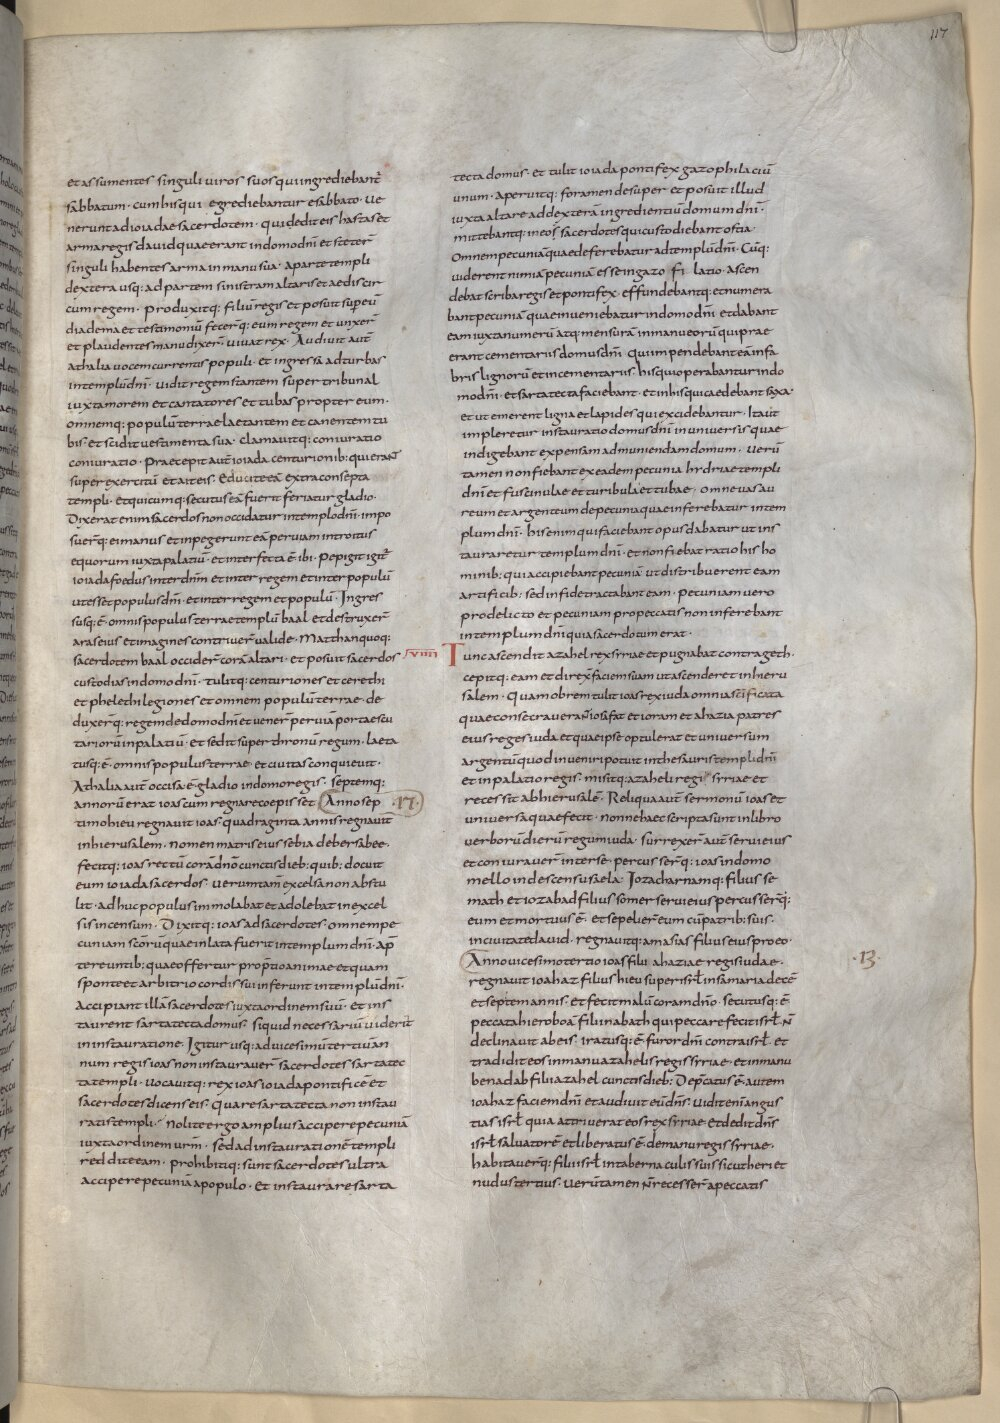 117
et assumentes singuli uiros suos qui ingrediebant̄
sabbatum · cum his qui egrediebantur e sabbato · ue
nerunt ad ioiadae sacerdotem · qui dedit eis hastas et
arma regis dauid quae erant in domo dn̄i et steter̄
singuli habentes arma in manu sua · a parte templi
dextera usq; ad partem sinistram altaris et aedis cir
cum regem · Produxitq; filiū regis et posuit sup eū
diadema et testimoniū fecer̄q; eum regem et unxer̄
et plaudentes manu dixer̄ uiuat rex · Audiuit aut̄
athalia uocem currentis populi · et ingressā ad turbas
in templū dn̄i · uidit regem stantem super tribunal
iuxta morem et cantatores et tubas propter eum ·
omnemq; populū terrae laetantem et canentem tu
bis · et scidit uestimenta sua · clamauitq; coniuratio
coniuratio · Praecepit aut̄ ioiada centurionib; qui erant
super exercitū et ait eis · Educite eā extra consepta
templi · et quicumq; secutus eā fuerit feriatur gladio ·
Dixerat enim sacerdos non occidatur in templo dn̄i · impo
suer̄q; ei manus et inpegerunt eā per uiam introitus
equorum iuxta palatiū · et interfecta ē ibi · Pepigit igit̄
ioiada foedus inter dn̄m et inter regem et inter populū
ut esset populus dn̄i · et inter regem et populū · Ingres
susq; ē omnis populus terrae templū baal · et destruxer̄
aras eius et imagines contriuer̄ ualide · Matthan quoq;
sacerdotem baal occider̄ corā altari · et posuit sacerdos
custodias in domo dn̄i · tulitq; centuriones et cerethi
et phelethi legiones et omnem populū terrae · de
duxer̄q; regem de domo dn̄i et uener̄ per uia portae scu
tariorū in palatiū · et sedit super thronū regum · laeta
tusq; ē omnis populus terrae · et ciuitas conquieuit ·
Athalia aut̄ occisa ē gladio in domo regis · septemq;
annorū erat ioas cum regnare coepisset · Anno sep · 17 ·
timo hieu regnauit ioas · quadraginta annis regnauit
in hierusalem · nomen matris eius sebia de bersabee ·
fecitq; ioas rectū corā dn̄o cunctis dieb; quib; docuit
eum ioiada sacerdos · uerumtam̄ excelsa non abstu
lit · adhuc populus immolabat et adolebat in excel
sis incensum · Dixitq; ioas ad sacerdotes · omnem pe
cuniam sc̄orū quae inlata fuerit in templum dn̄i · ap̄
tereuntib; quae offertur pro ptio animae et quam
sponte et arbitrio cordis sui inferunt in templū dn̄i ·
accipiant illā sacerdotes iuxta ordinem suū · et ins
taurent sarta tecta domus · siquid necessariū uiderit
in instauratione · Igitur usq; ad uicesimū tertiū an
num regis ioas non instaurauer̄ sacerdotes sarta tec
ta templi · uocauitq; rex ioas ioiada pontificē et
sacerdotes dicens eis · Quare sarta tecta non instau
ratis templi · Nolite ergo amplius accipere pecuniā
iuxta ordinem ur̄m · sed ad instaurationē templi
reddite eam · prohibitiq; sunt sacerdotes ultra
accipere pecuniā a populo · et instaurare sarta
tecta domus · et tulit ioiada pontifex gazophilaciū
unum · aperuitq; foramen desuper et posuit illud
iuxta altare ad dexterā ingredientiū domum dn̄i ·
mittebantq; in eo sacerdotes qui custodiebant ostia ·
Omnem pecuniā quae deferebatur ad templū dn̄i · Cūq;
uiderent nimiā pecuniā esse in gazofilatio · ascen
debat scriba regis et pontifex · effundebantq; et numera
bant pecuniā quae inueniebatur in domo dn̄i · et dabant
eam iuxta numerū atq; mensurā in manu eorū qui prae
erant cementariis domus dn̄i · qui impendebant eā in fa
bris lignorū et in cementariis · his qui operabantur in do
mo dn̄i · et sarta tecta faciebant · et in his qui caedebant saxa ·
et ut emerent ligna et lapides qui excidebantur · Ita ut
impleretur instauratio domus dn̄i in uniuersis quae
indigebant expensam ad muniendam domum · uerū
tamen non fiebant ex eadem pecunia hydriae templi
dn̄i et fuscinulae et turibula et tubae · omne uas au
reum et argenteum de pecunia quae inferebatur in tem
plum dn̄i · his enim qui faciebant opus dabatur ut ins
tauraretur templum dn̄i · et non fiebat ratio his ho
minib; qui accipiebant pecuniā ut distribuerent eam
artificib; sed in fide tractabant eam · pecuniam uero
pro delicto et pecuniam pro peccatis non inferebant
in templum dn̄i quia sacerdotum erat ·
xviiii Tunc ascendit azahel rex syriae et pugnabat contra geth ·
cepitq; eam et direx̄ faciem suam ut ascenderet in hieru
salem · Quam obrem tulit ioas rex iuda omnia sc̄ificata
quae consecrauerant iosafat et ioram et ahazia patres
eius reges iuda et quae ipse optulerat et uniuersum
argentū quod inueniri potuit in thesauris templi dn̄i
et in palatio regis · misitq; azaheli regi syriae et
recessit ab hierusalē · Reliqua aut̄ sermonū ioas et
uniuersa quae fecit · nonne haec scripta sunt in libro
uerborū dierū regum iuda · surrexer̄ aut̄ serui eius
et coniurauer̄ inter se · percusser̄q; ioas in domo
mello in descensu saela · Iozachar namq; filius se
math et iozabad filius somer serui eius percusser̄q;
eum et mortuus ē · et sepelier̄ eum cū patrib; suis ·
in ciuitate dauid · regnauitq; amasias filius eius pro eo ·
Anno uicesimo tertio ioas filii ahaziae regis iudae · · 13 ·
regnauit ioahaz filius hieu super isrł in samaria decē
et septem annis · et fecit malū coram dn̄o · secutusq; ē
peccata hieroboā filii nabath qui peccare fecit isrł · n̄
declinauit ab eis · iratusq; ē furor dn̄i contra isrł · et
tradidit eos in manu azahelis regis syriae · et in manu
benadab filii azahel cunctis dieb; Depcatus ē autem
ioahaz faciem dn̄i et audiuit eū dn̄s · uidit enī angus
tias isrł quia attriuerat eos rex syriae · et dedit dn̄s
isrł saluatorē et liberatus ē de manu regis syriae ·
habitauer̄q; filii isrł in tabernaculis suis sicut heri et
nudus tertius · uerūtamen n̄ recesser̄ a peccatis